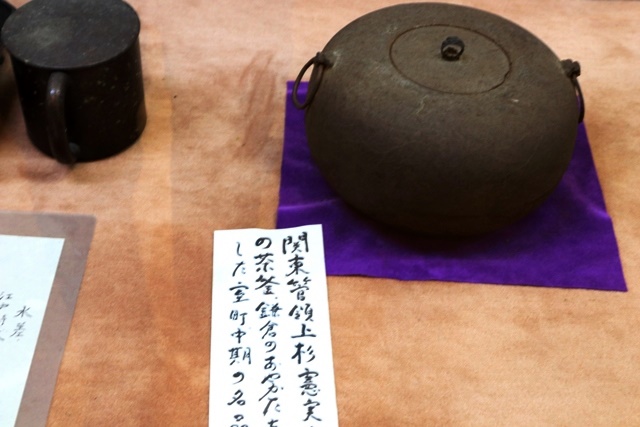 関東管領上杉憲実
の茶釜、鎌倉のおやかた
した室町中期の名品
水差